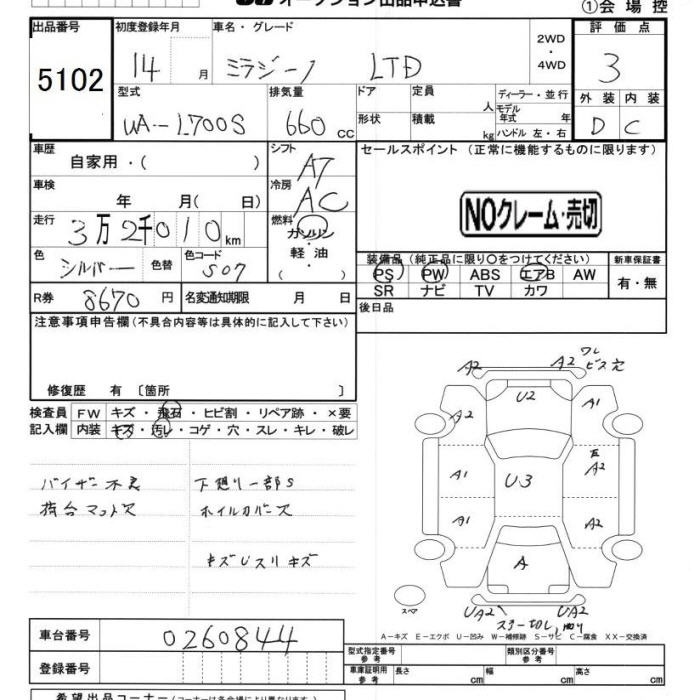 オークション出品申込書
①会場控
出品番号
5102
初度登録年月
14 月
車名・グレード
ミラジーノ LTD
2WD
・
4WD
評価点
3
型式
UA-L700S
排気量
660 cc
ドア
形状
定員 人
積載 kg
ディーラー・並行
モデル年式 年
ハンドル 左・右
外装 内装
D C
車歴
自家用・( )
シフト
A7
車検
年 月( 日)
冷房
AC
走行
3万2千010km
燃料
ガソリン
・
軽油
( )
色
シルバー
色替
色コード
S07
R券 8670円
名変通知期限 月 日
セールスポイント (正常に機能するものに限ります)
NOクレーム・売切
装備品 (純正品に限り○をつけてください)
PS PW ABS エアB AW
SR ナビ TV カワ
新車保証書
有・無
後日品
注意事項申告欄(不具合内容等は具体的に記入して下さい)
修復歴 有 〔箇所 〕
検査員記入欄
FW キズ・飛石・ヒビ割・リペア跡・×要
内装 キズ・汚レ・コゲ・穴・スレ・キレ・破レ
バイザー不良 下廻り一部S
荷台マットス ホイルカバース
キズUスリキズ
A2 A2 ワレ
ビス穴
U2
A2 A1
A1 U3 A2
A1 A2
A
スペア
UA2 UA2
A-キズ E-エクボ U-凹み W-補修跡 S-サビ C-腐食 XX-交換済
車台番号 0260844
登録番号
型式指定番号
参考
類別区分番号
参考
車庫証明用
参考
長さ cm 幅 cm 高さ cm
希望出品コーナー(コーナーは各会場により異なります)